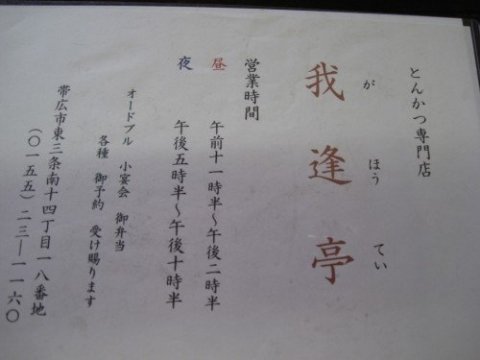 とんかつ専門店
我逢亭
がほうてい
営業時間
昼 午前十一時半〜午後二時半
夜 午後五時半〜午後十時半
オードブル 小宴会 御弁当
各種 御予約 受け賜ります
帯広市東三条南十四丁目一八番地
(〇一五五)二三―一一六〇